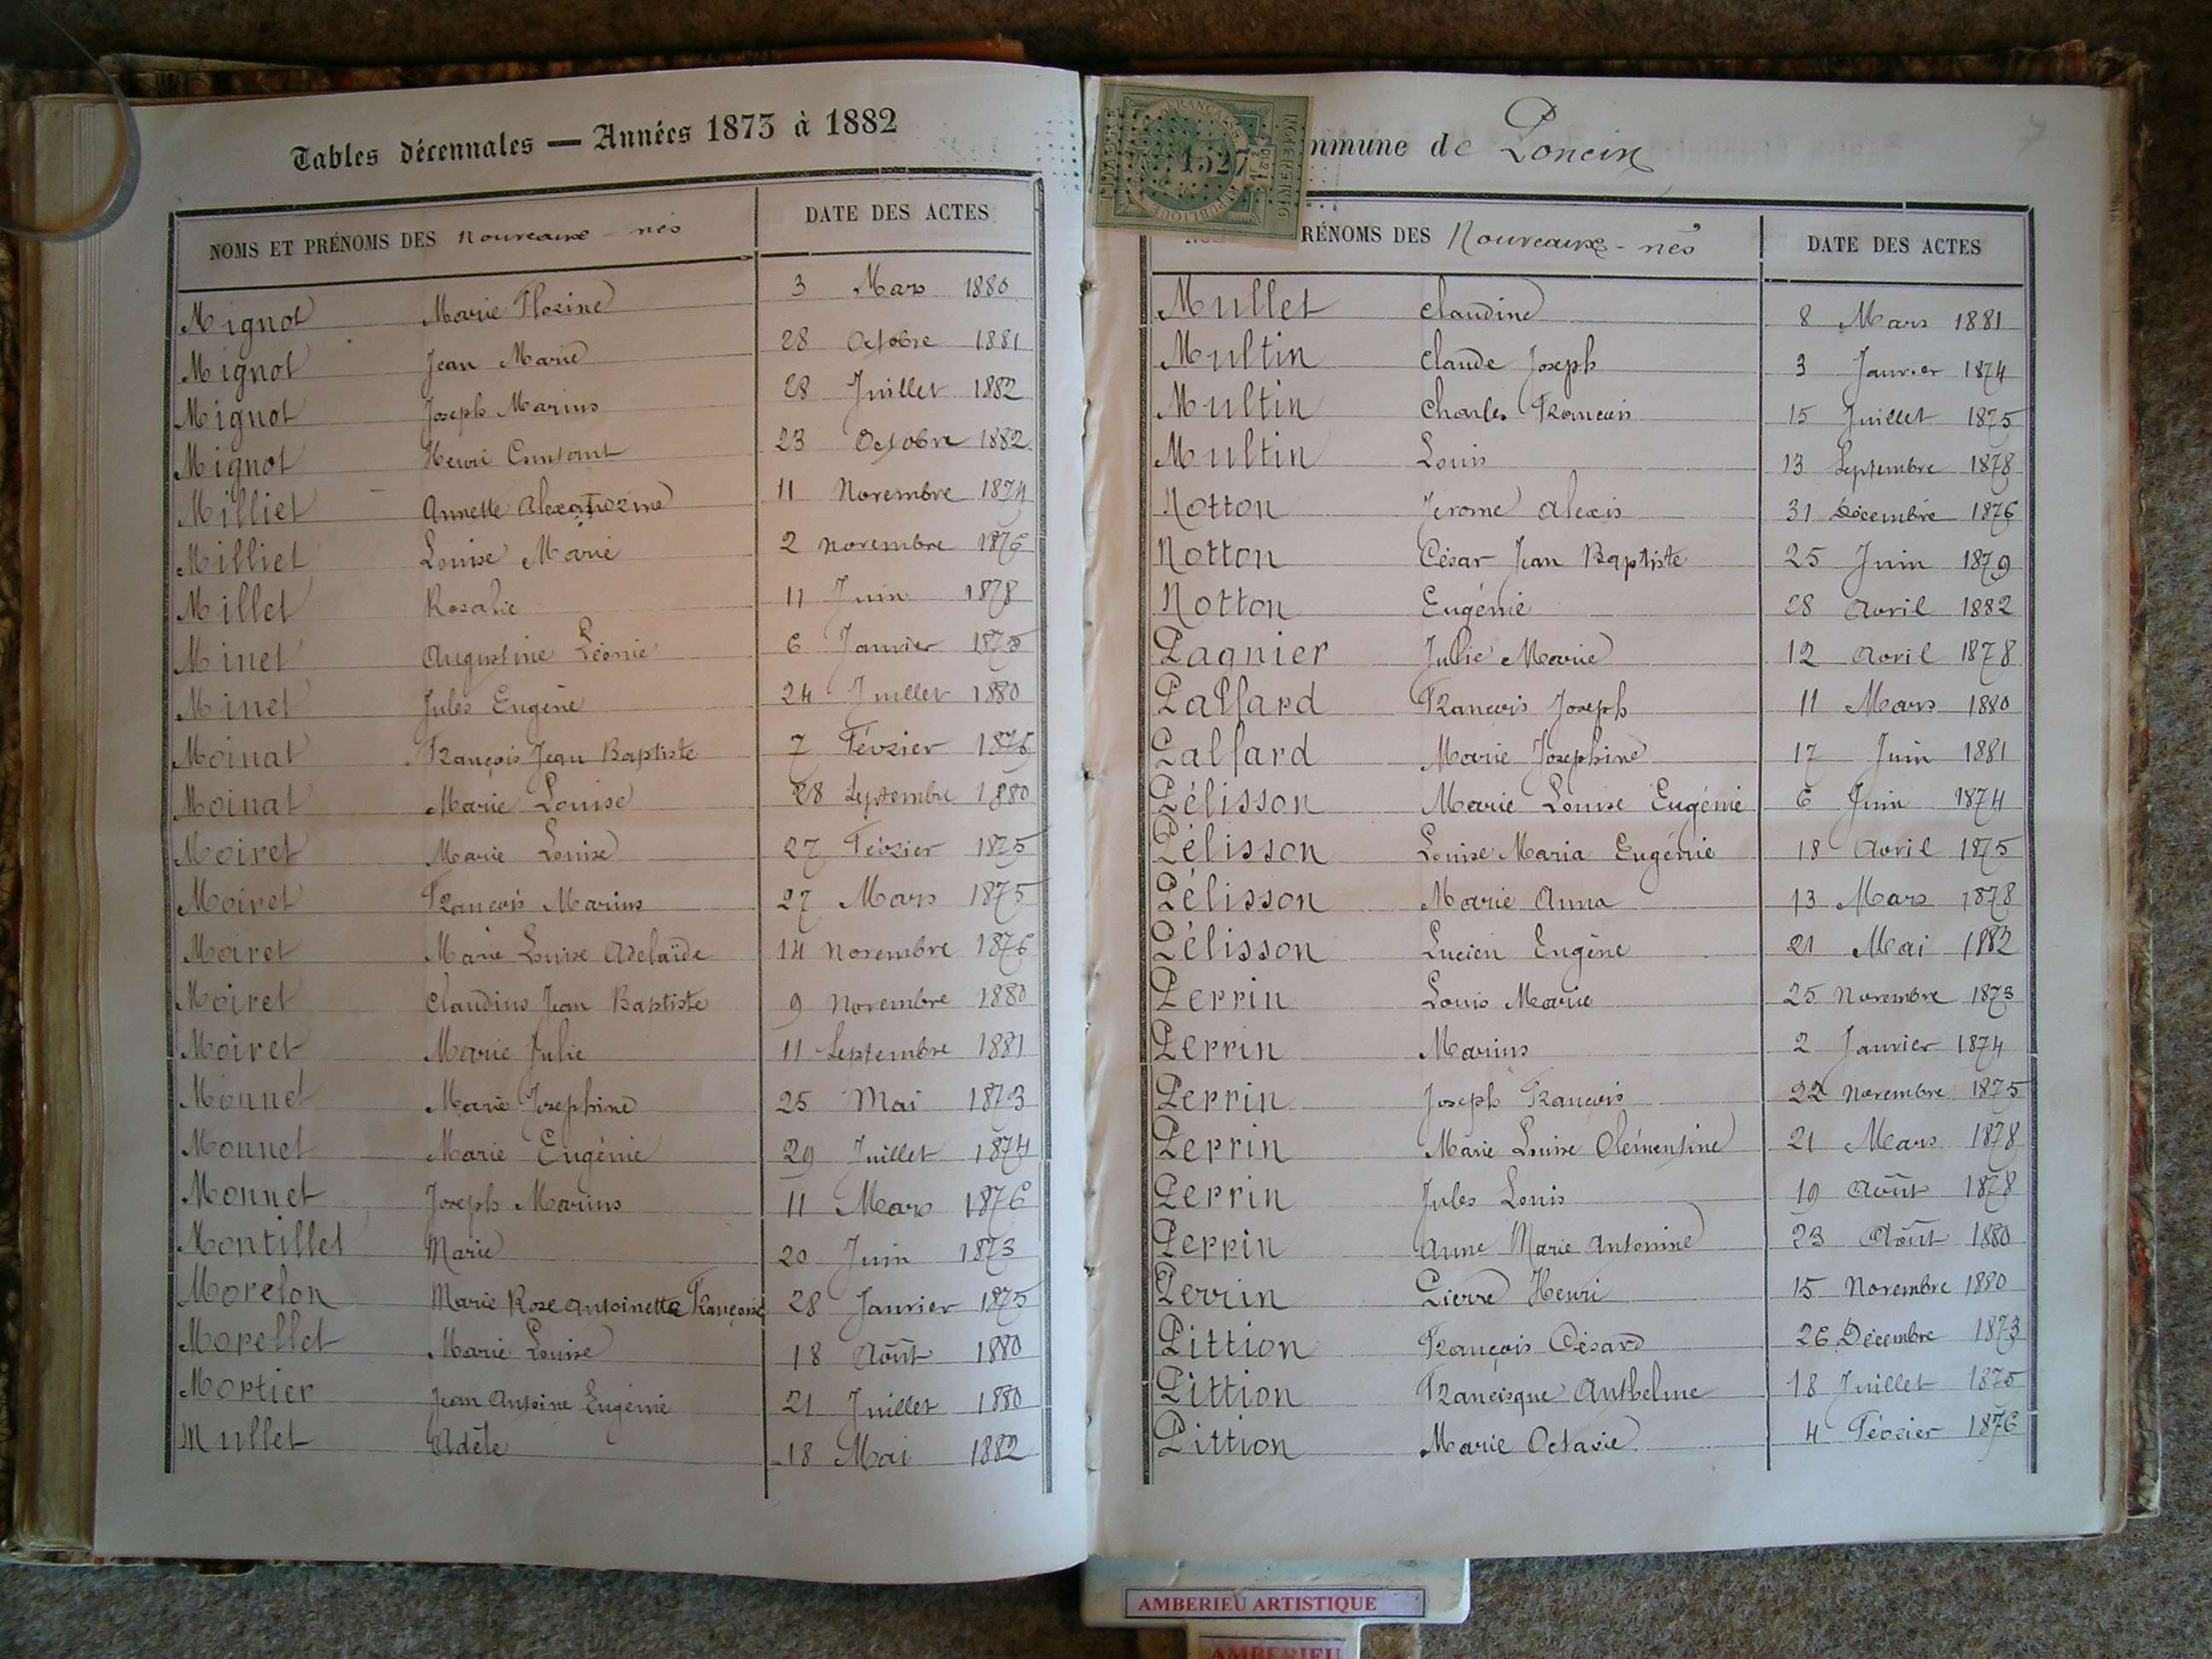 Tables décennales — Années 1873 à 1882
NOMS ET PRÉNOMS DES Nouveaux-nés DATE DES ACTES
Mignot Marie Florine 3 Mars 1880
Mignot Jean Marie 28 Octobre 1881
Mignot Joseph Marius 28 Juillet 1882
Mignot Henri Constant 23 Octobre 1882
Milliet Annette Alexandrine 11 Novembre 1874
Milliet Louise Marie 2 Novembre 1876
Millet Rosalie 11 Juin 1878
Minet Augustine Léonie 6 Janvier
Minet Jules Eugène 24 Juillet 1880
Moinat François Jean Baptiste 7 Février 1876
Moinat Marie Louise 28 Septembre 1880
Moiret Marie Louise 27 Février 1875
Moiret François Marius 27 Mars 1875
Moiret Marie Louise Adelaïde 14 Novembre 1876
Moiret Claudius Jean Baptiste 9 Novembre 1880
Moiret Marie Julie 11 Septembre 1881
Monnet Marie Josephine 25 Mai 1873
Monnet Marie Eugénie 29 Juillet 1874
Monnet Joseph Marius 11 Mars 1876
Montillet Marie 20 Juin 1873
Morelon Marie Rose Antoinette Françoise 28 Janvier 1875
Morellet Marie Louise 18 Août 1880
Mortier Jean Antoine Eugénie 21 Juillet 1880
Mullet Adèle 18 Mai 1882
mmune de Poncin
7
1527
RÉNOMS DES Nouveaux-nés DATE DES ACTES
Mullet Claudine 8 Mars 1881
Multin Claude Joseph 3 Janvier 1874
Multin Charles François 15 Juillet 1875
Multin Louis 13 Septembre 1878
Notton Jérome Alexis 31 Décembre 1876
Notton César Jean Baptiste 25 Juin 1879
Notton Eugénie 28 Avril 1882
Pagnier Julie Marie 12 Avril 1878
Palfard François Joseph 11 Mars 1880
Palfard Marie Josephine 17 Juin 1881
Pélisson Marie Louise Eugénie 6 Juin 1874
Pélisson Louise Maria Eugénie 18 Avril 1875
Pélisson Marie Anna 13 Mars 1878
Pélisson Lucien Eugène 21 Mai 1882
Perrin Louis Marie 25 Novembre 1873
Perrin Marius 2 Janvier 1874
Perrin Joseph François 22 Novembre 1875
Perrin Marie Louise Clémentine 21 Mars 1878
Perrin Jules Louis 19 Août 1878
Perrin Anne Marie Antonine 23 Août 1880
Perrin Pierre Henri 15 Novembre 1880
Pittion François Césard 26 Décembre 1873
Pittion Francisque Anthelme 18 Juillet 1875
Pittion Marie Octavie 4 Février 1876
AMBERIEU ARTISTIQUE
AMBERIEU